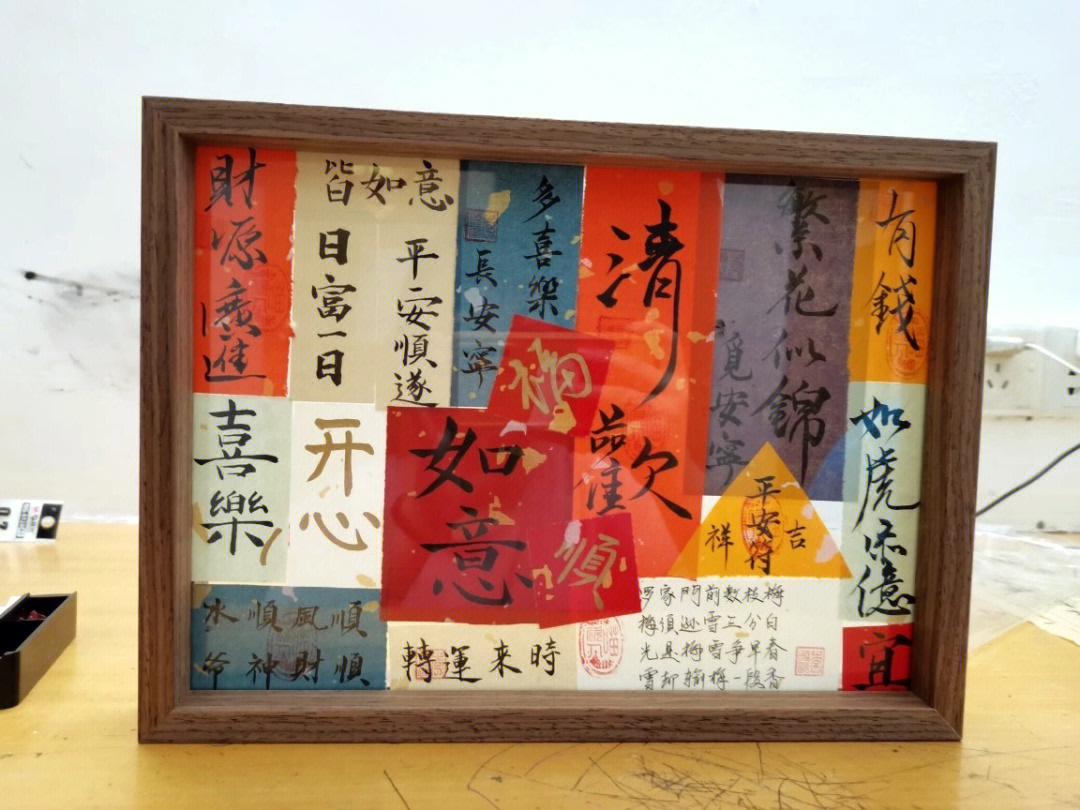 財源廣進
皆如意
日富一日
平安順遂
多喜樂
長安寧
清歡
品
福
繁花似錦
覓安寧
有錢
喜樂
开心
如意
順
平安符
吉祥
如虎添億
順風順水
順財神命
時來運轉
家門前数枝梅
梅須逊雪三分白
光是梅雪争早春
雪却输梅一段香
宜